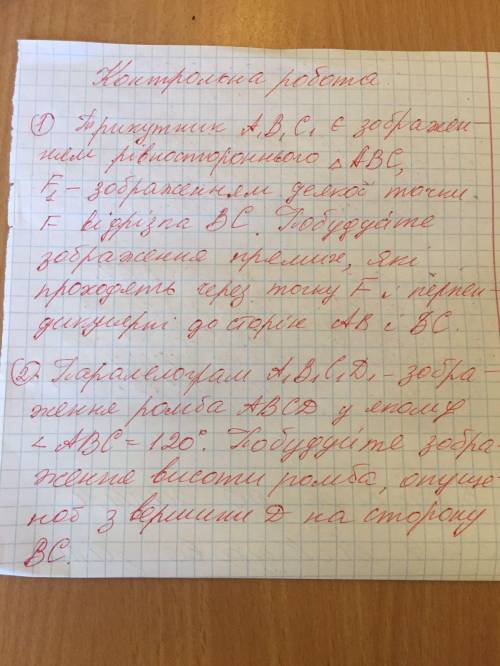 Контрольна робота
① Трикутник A₁B₁C₁ є зображен-
ням рівностороннього △ ABC,
F₁ - зображенням деякої точки
F відрізка BC. Побудуйте
зображення прямих, які
проходять через точку F і перпен-
дикулярні до сторін AB і BC.
② Паралелограм A₁B₁C₁D₁ - зобра-
ження ромба ABCD у якому
< ABC = 120°. Побудуйте зобра-
ження висоти ромба, опуще-
ної з вершини D на сторону
BC.